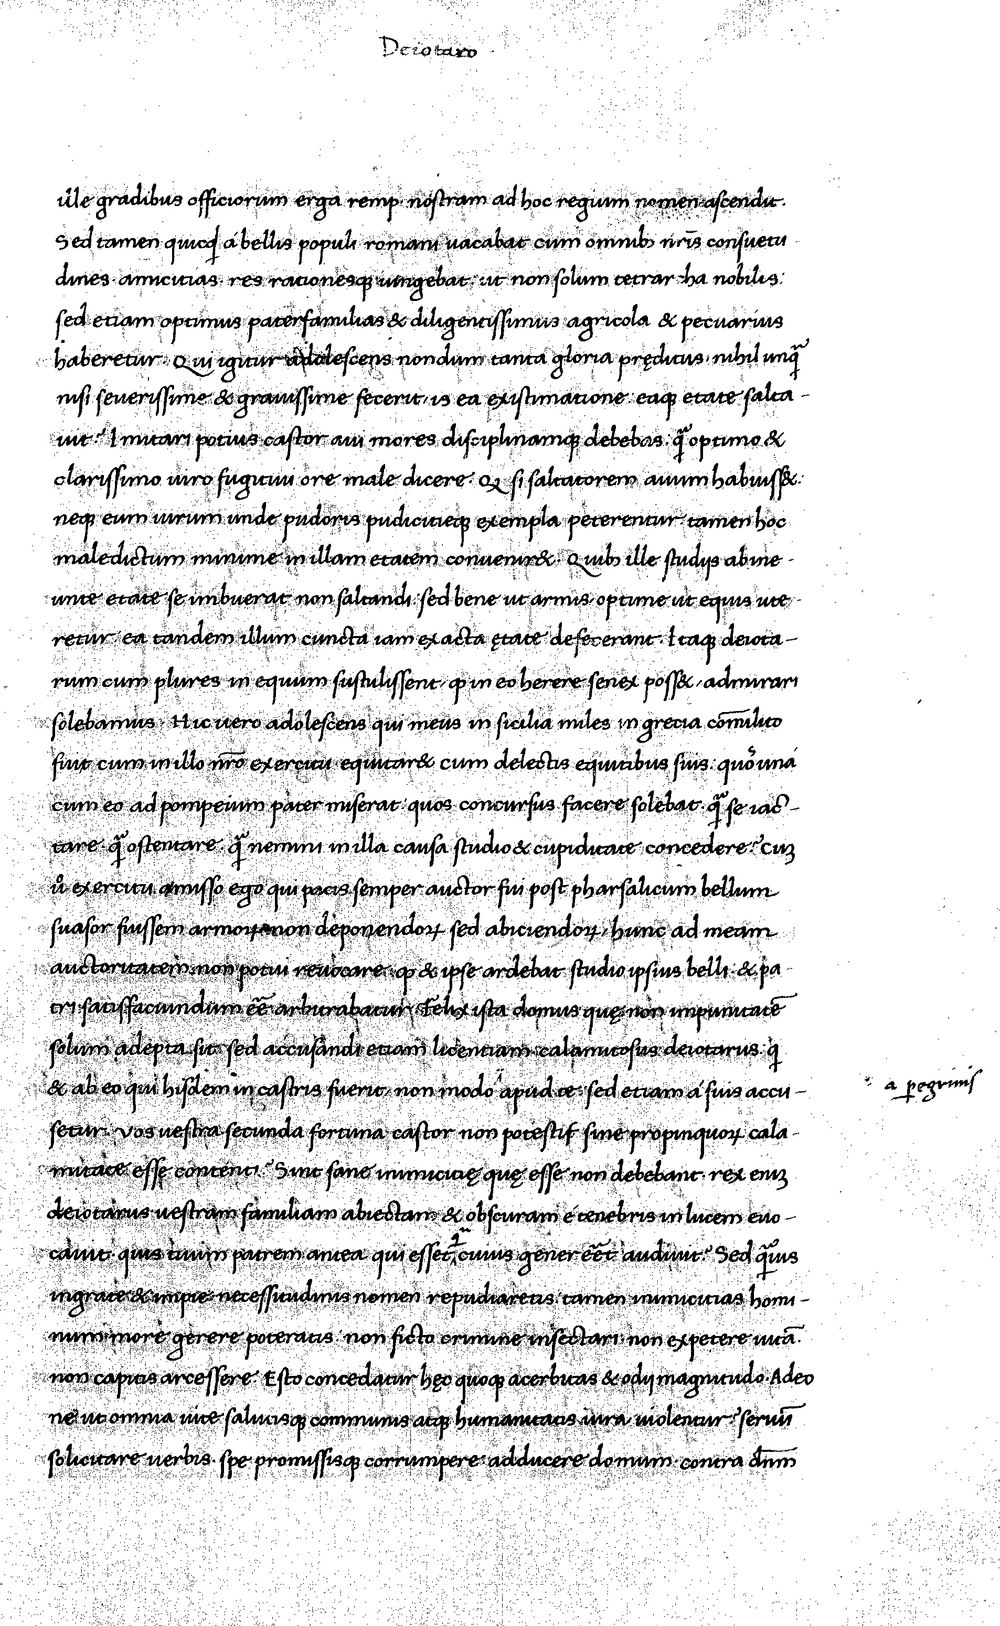 Deiotaro
ille gradibus officiorum erga remp. nostram ad hoc regium nomen ascendit.
Sed tamen quicq̄d á bellis populi romani uacabat cum omnib; nr̄is consuetu
dines. amicitias. res rationesq; iungebat. ut non solum tetrarcha nobilis:
sed etiam optimus paterfamilias & diligentissimus agricola & pecuarius
haberetur. Qui igitur adolescens nondum tanta gloria pręditus. nihil unq̄ꝫ
nisi seuerissime & grauissime fecerit, is ea existimatione eaq; etate salta-
uit? Imitari potius castor aui mores disciplinamq; debebas. q̄ optimo &
clarissimo uiro fugitiui ore male dicere. Q; si saltatorem auum habuiss&.
neq; eum uirum unde pudoris pudicitieq; exempla peterentur. tamen hoc
maledictum minime in illam etatem conuenir&. Quib; ille studijs ab ine-
unte etate se imbuerat non saltandi. sed bene ut armis. optime ut equis ute-
retur. ea tandem illum cuncta iam exacta ętate defecerant. Itaq; deiota-
rum cum plures in equum sustulissent, ꝙ in eo herere senex poss&, admirari
solebamus. Hic uero adolescens qui meus in sicilia miles in grecia com̄ilito
fuit cum in illo nr̄o exercitu equitar& cum delectis equitibus suis. quos una
cum eo ad pompeium pater miserat. quos concursus facere solebat. q̄ se iac-
tare. q̄ ostentare. q̄ nemini in illa causa studio & cupiditate concedere? Cuꝫ
u̅o exercitu amisso ego qui pacis semper auctor fui post pharsalicum bellum
suasor fuissem armoꝝ non deponendoꝝ sed abiciendoꝝ, hunc ad meam
auctoritatem non potui reuocare. ꝙ & ipse ardebat studio ipsius belli. & pa-
tri satisfaciundum eē arbitrabatur. Felix ista domus quę non impunitatē
solum adepta sit. sed accusandi etiam licentiam. calamitosus deiotarus. q̄
& ab eo qui hisdem in castris fuerit. non modo apud te. sed etiam á suis accu-
a peregrinis
setur. Vos uestra secunda fortuna castor non potestis sine propinquoꝝ cala-
mitate esse contenti? Sint sane inimicitię quę esse non debebant. rex eniꝫ
deiotarus uestram familiam abiectam & obscuram e tenebris in lucem euo-
cauit. quis tuum patrem antea qui esset, cuius gener eēt audiuit? Sed q̄uis
ingrate & impie necessitudinis nomen repudiaretis. tamen inimicitias homi-
num more gerere poteratis. non ficto crimine insectari. non expetere uitā.
non capitis arcessere. Esto concedatur hęc quoq; acerbitas & odij magnitudo. Adeo
ne ut omnia uite salutisq; communis atq; humanitatis iura uiolentur? seruū
solicitare uerbis. spe promissisq; corrumpere. adducere domum. contra dn̄m